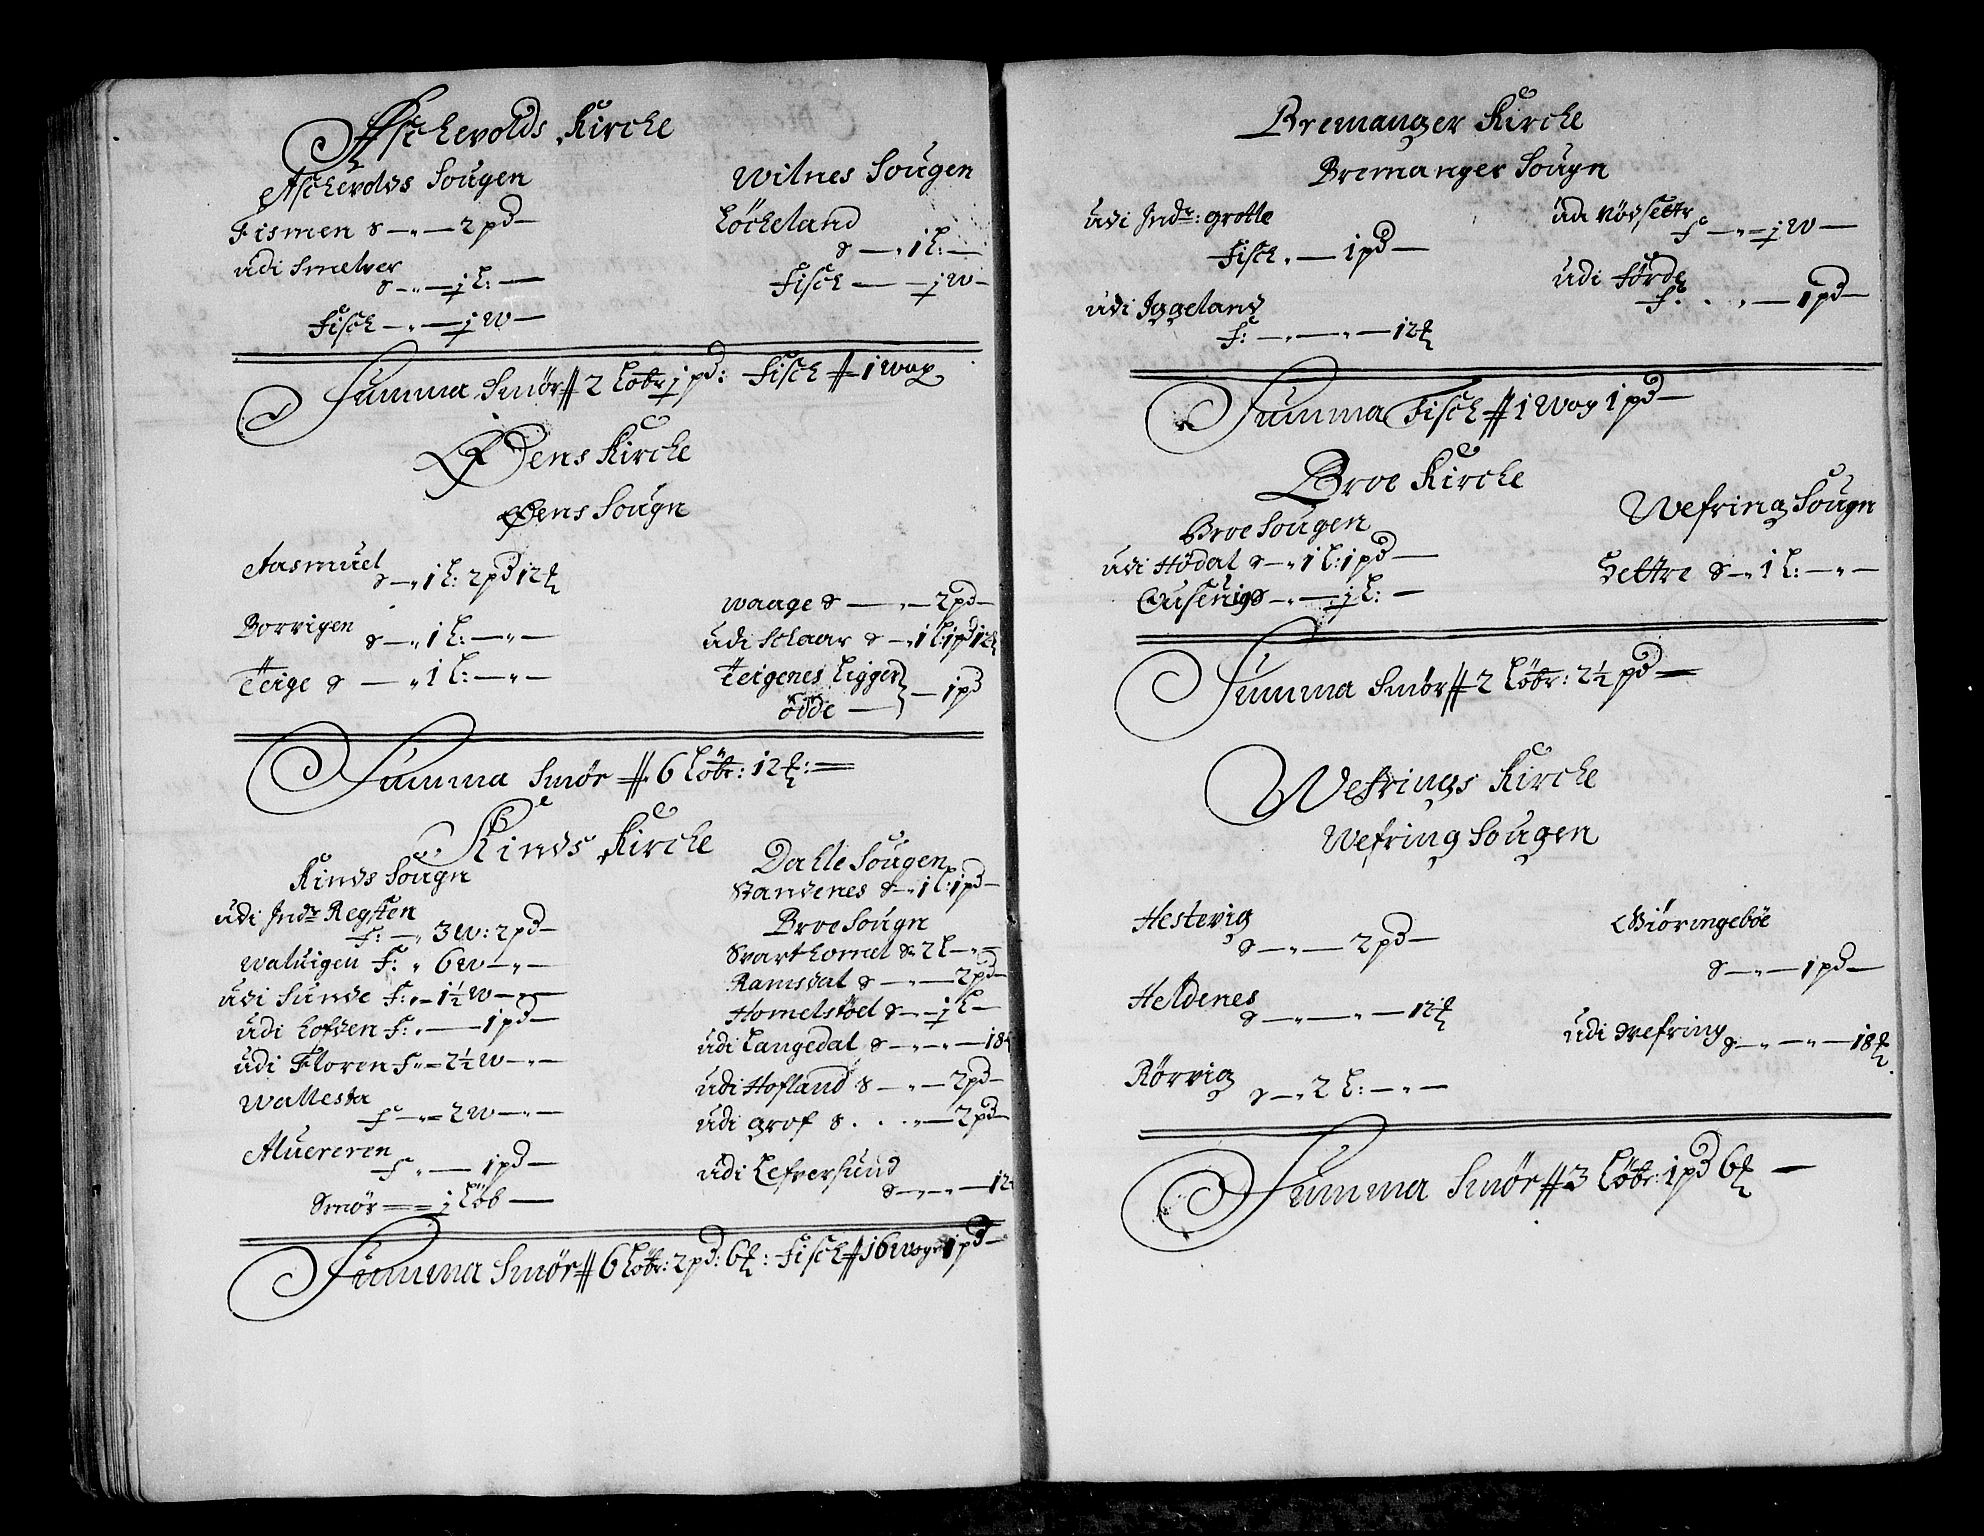 Aschevolds Kirche
Aschevolds Sougen
Fismen S — „ — 2 pd —
udi Smelver
S — „ — j L: —
Fisch — „ — j W —
Wilnes Sougen
Löcheland
S — „ 1 L: —
Fisch — — j W —
Summa Smör # 2 Löbr j pd: Fisch # 1 Wog
Øens Kirche
Øens Sougn
Aasmuel
S — „ 1 L: 2 pd 12 ℔
Borvigen S — „ 1 L: — „ —
Teige S — „ 1 L: — „ —
Waage S — „ — 2 pd —
udi Schaar S — „ 1 L: 1 pd 12 ℔
Teigenes Ligger
ödde — } — 1 pd
Summa Smör # 6 Löbr: 12 ℔: —
Kinds Kirche
Kinds Sougn
udi Indr Regsten
F: — „ 3 W: 2 pd —
Waluigen F: „ 6 W — „ —
udi Sunde F: „ — 1½ W — „ —
udi Lofden F: „ — 1 pd —
udi Floren F „ — 2½ W — „ —
Wallestr
F — „ — 2 W — „ —
Aluereren
F „ — 1 pd —
Smör — — j Löb —
Dahle Sougen
Standenes S — „ 1 L: 1 pd —
Broe Sougn
Svarthomel S 2 L — „ —
Ramsdal S — „ — 2 pd —
Homelstöel S — „ — j L —
udi Langedal S — „ — „ — 18 ℔
udi Hofland S — „ — 2 pd —
udi grof S . . . „ — 2 pd —
udi Lefversund
S — „ — „ — 12
Summa Smör # 6 Löbr: 2 pd: 6 ℔: Fisch # 16 Wogr 1 pd —
Bremanger Kirche
Bremanger Sougn
udi Indr: grotle
Fisch „ — 1 pd —
udi Iggeland
F: — „ — „ — 12 ℔
udi Nödsettr
F — „ — j W —
udi Förde
F. . . „ — 1 pd —
Summa Fisch # 1 Wog 1 pd —
Broe Kirche
Broe Sougen
udi Hödal S — „ 1 L: 1 pd —
Ousenig S — „ — j L: —
Wefring Sougn
Settre S — „ 1 L: — „ —
Summa Smör # 2 Löbr: 2½ pd —
Wefrings Kirche
Wefring Sougen
Hestevig
S — „ — 2 pd —
Heldenes
S — „ — „ — 12 ℔
Rörvig S — „ 2 L: — „ —
Giöringeböe
S — „ — 1 pd —
udi Wefring S — „ — „ — 18 ℔
Summa Smör # 3 Löbr: 1 pd 6 ℔ —